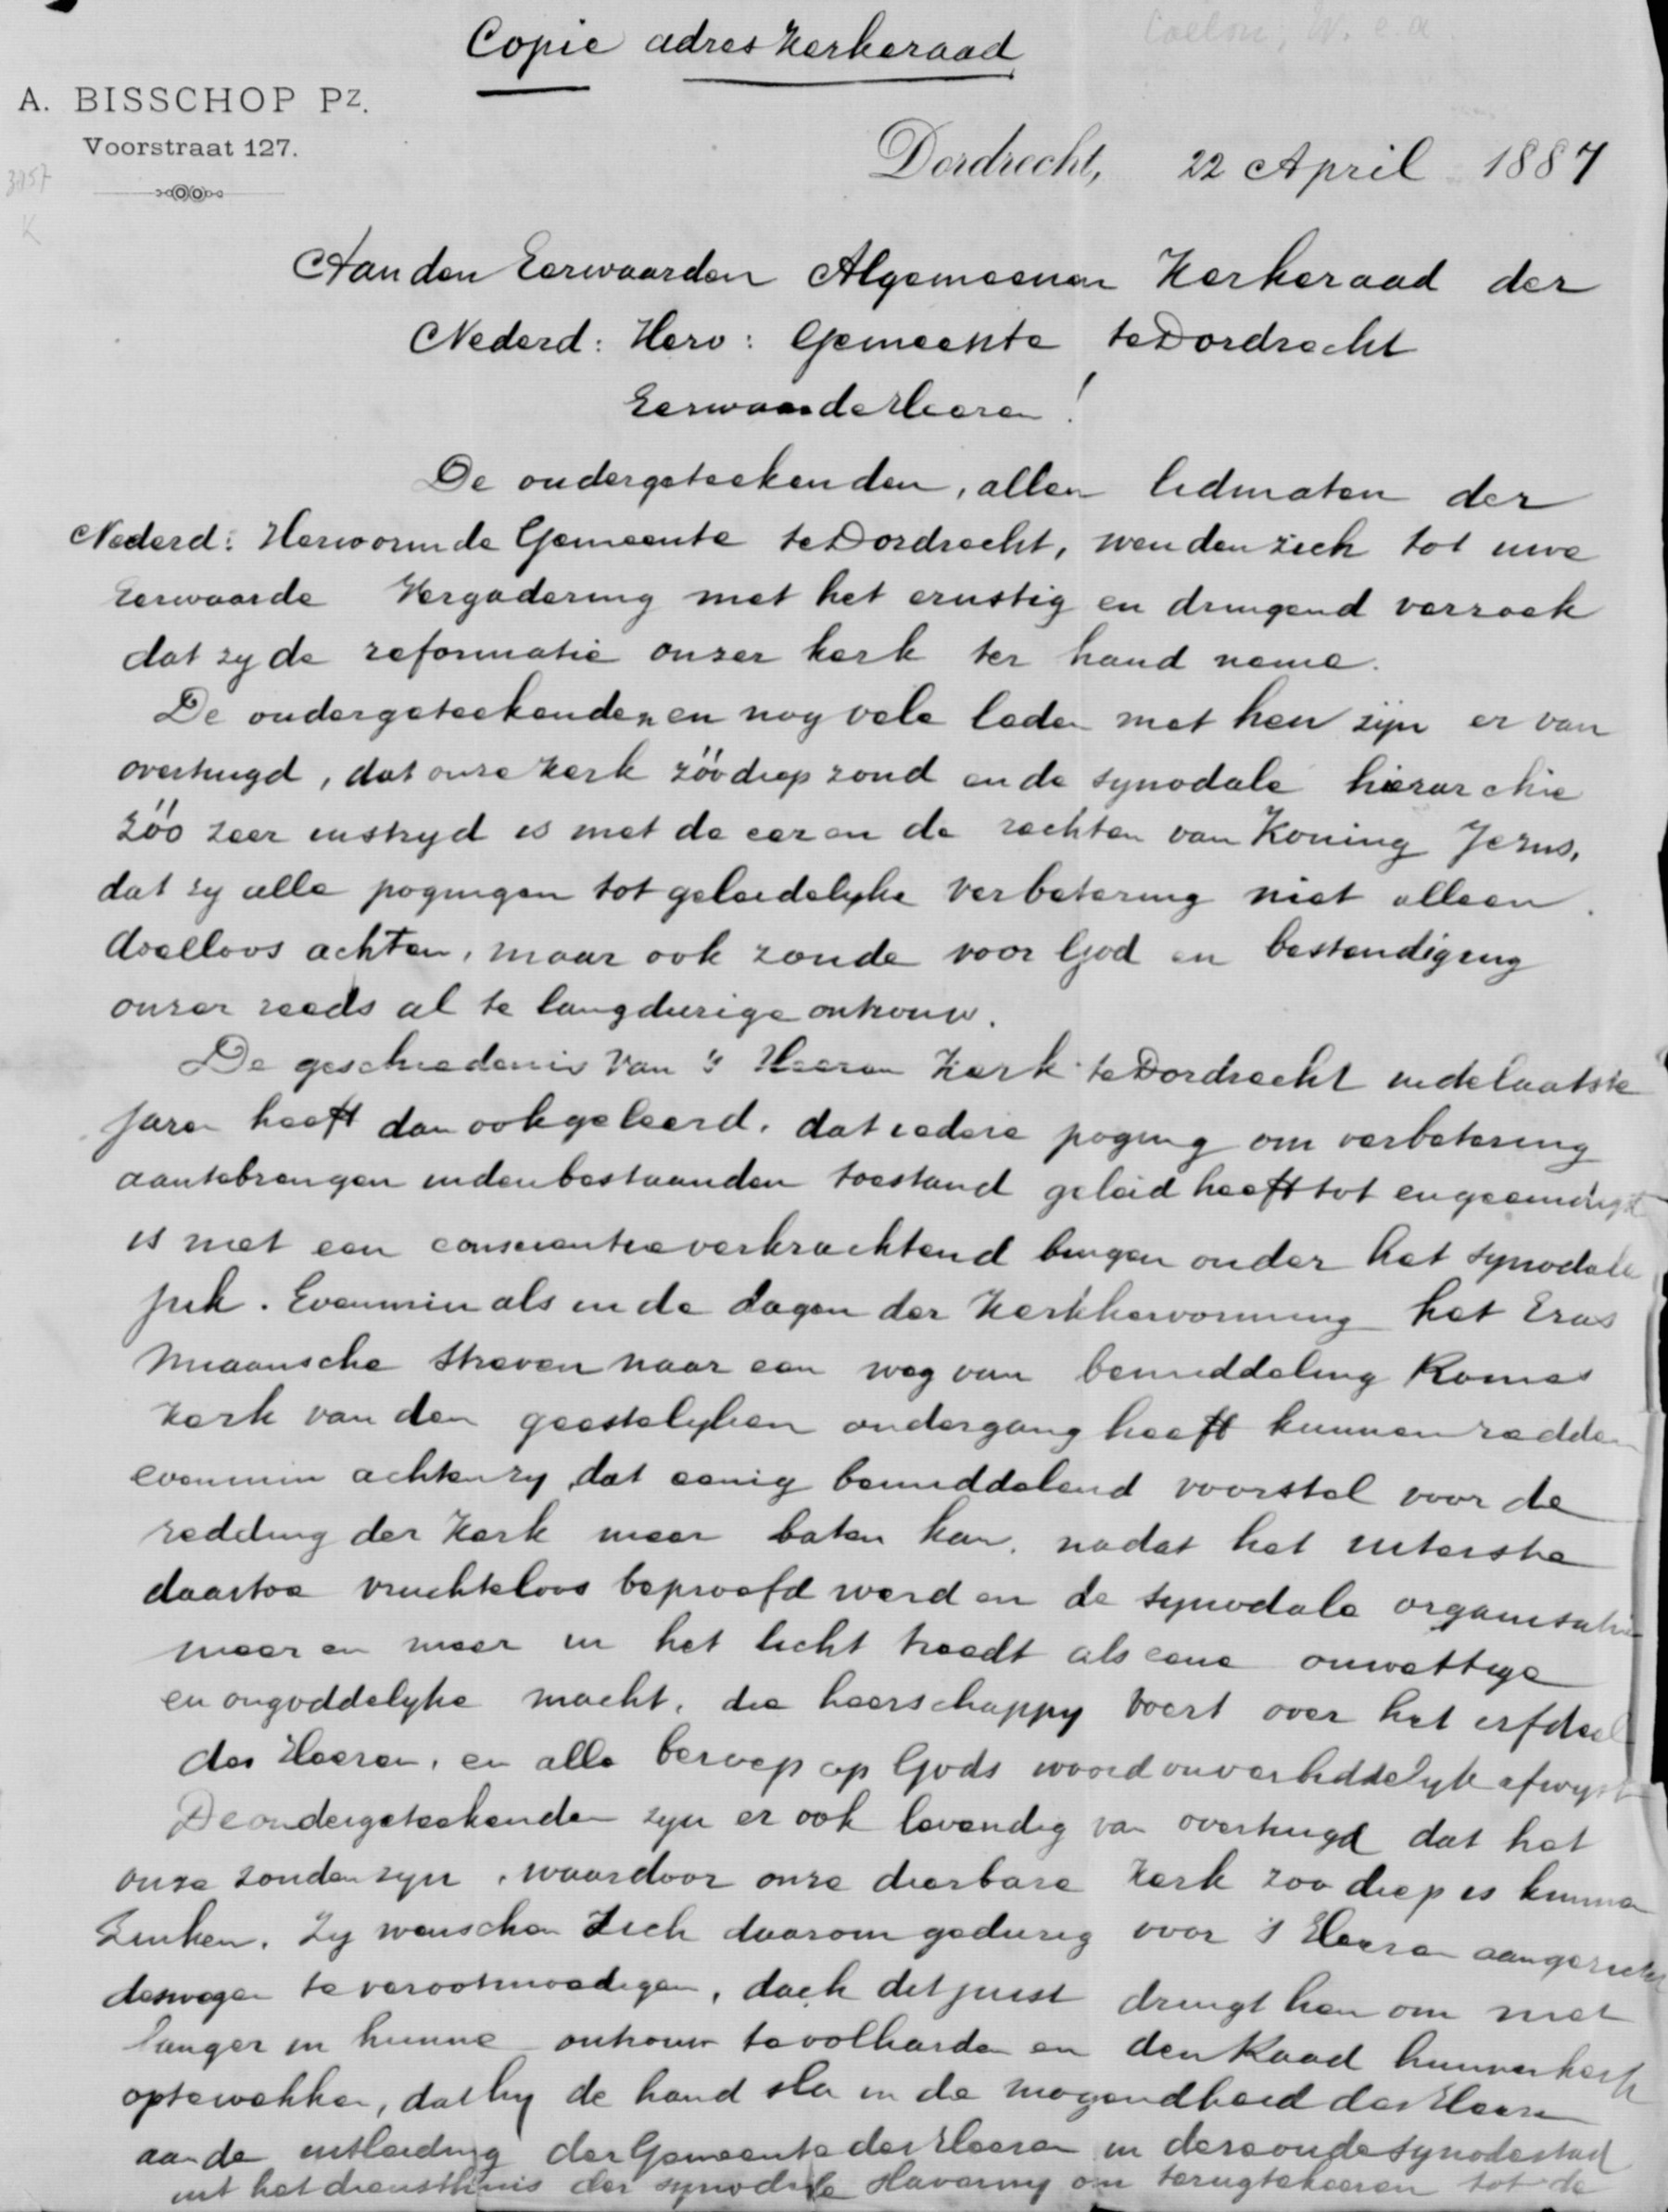 Copie adres Kerkeraad
A. BISSCHOP Pz.
Voorstraat 127.
Dordrecht, 22 April 1887
Aan den Eerwaarden Algemeenen Kerkeraad der
Nederd: Herv: Gemeente te Dordrecht
Eerwaarde Heeren!
De ondergeteekenden, allen lidmaten der
Nederd: Hervormde Gemeente te Dordrecht, wenden zich tot uwe
Eerwaarde Vergadering met het ernstig en dringend verzoek
dat zy de reformatie onzer kerk ter hand neme.
De ondergeteekenden en nog vele leden met hen zijn er van
overtuigd, dat onze Kerk zóó diep zond en de synodale hierarchie
zóó zeer instryd is met de eer en de rechten van Koning Jezus,
dat zy alle pogingen tot geleidelyke verbetering niet alleen
doelloos achten, maar ook zonde voor God en bestendiging
onzer reeds al te langdurige ontrouw.
De geschiedenis van 's Heeren Kerk te Dordrecht in de laatste
jaren heeft dan ook geleerd, dat iedere poging om verbetering
aantebrengen in den bestaanden toestand geleid heeft tot en geeindigd
is met een conscientieverkrachtend buigen onder het synodale
juk. Evenmin als in de dagen der Kerkhervorming het Eras
miaansche streven naar een weg van bemiddeling Romes
Kerk van den geestelyken ondergang heeft kunnen redden
evenmin achten zy dat eenig bemiddelend voorstel voor de
redding der Kerk meer baten kan, nadat het uiterste
daartoe vruchteloos beproefd werd en de synodale organisatie
meer en meer in het licht treedt als eene onwettige
en ongoddelyke macht, die heerschappy voert over het erfdeel
des Heeren, en alle beroep op Gods woord onverbiddelyk afwyst
De ondergeteekenden zyn er ook levendig van overtuigd dat het
onze zonden zyn, waardoor onze dierbare Kerk zoo diep is kunnen
zinken. Zy wenschen zich daarom gedurig voor 's Heeren aangezicht
deswegen te verootmoedigen, doch dit juist dringt hen om niet
langer in hunne ontrouw te volharden en den Raad hunner kerk
optewekken, dat hy de hand sla in de mogendheid des Heeren
aan de uitleiding der Gemeente des Heeren in deze oude synodestad
uit het diensthuis der synodale slaverny om terugtekeeren tot de